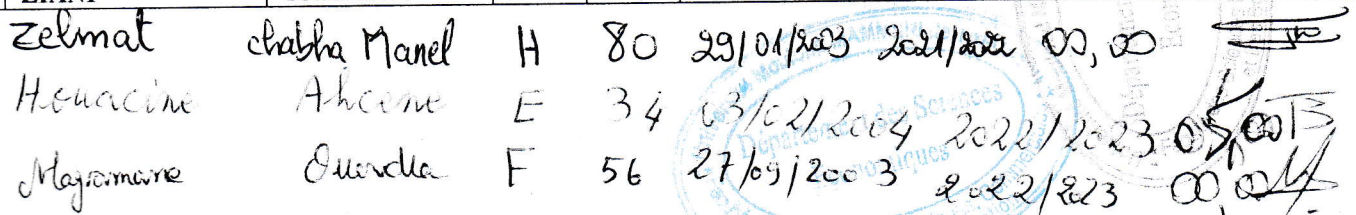 Zelmat chabha Manel H 80 29/01/2003 2021/2022 00,00
Houacine Ahcene E 34 03/02/2004 2022/2023 05,00
Ouerdia F 56 27/09/2003 2022/2023 00,00
Département des Sciences